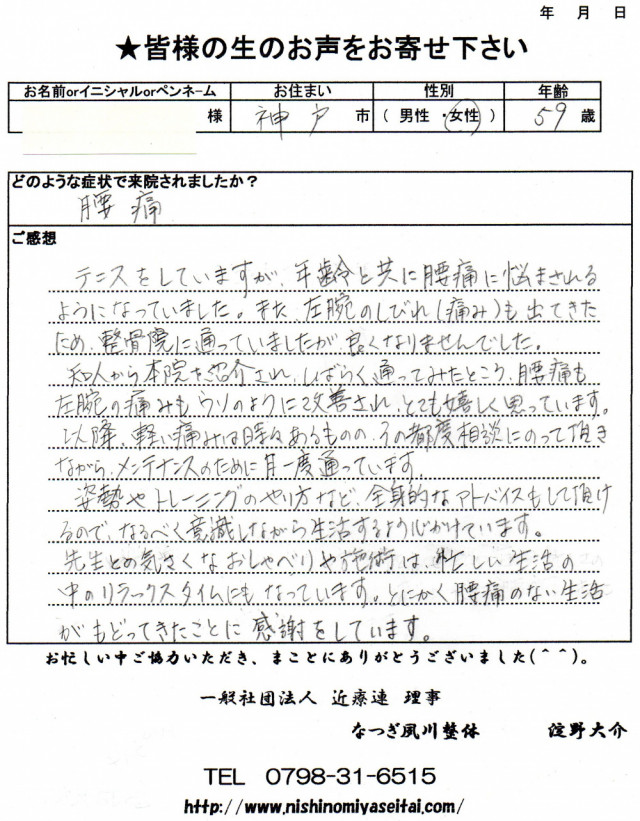 年 月 日
★皆様の生のお声をお寄せ下さい
お名前orイニシャルorペンネーム お住まい 性別 年齢
様 神戸 市 ( 男性 ・ 女性 ) 59 歳
どのような症状で来院されましたか？
腰痛
ご感想
テニスをしていますが、年齢と共に腰痛に悩まされる
ようになっていました。また、左腕のしびれ(痛み)も出てきた
ため、整骨院に通っていましたが良くなりませんでした。
知人から本院を紹介され、しばらく通ってみたところ、腰痛も
左腕の痛みもウソのように改善され、とても嬉しく思っています。
以降、軽い痛みは時々あるものの、その都度相談にのって頂き
ながら、メンテナンスのために月一度通っています。
姿勢やトレーニングのやり方など、全身的なアドバイスもして頂け
るので、なるべく意識しながら生活するよう心がけています。
先生との気さくなおしゃべりや施術は、忙しい生活の
中のリラックスタイムにもなっています。とにかく腰痛のない生活
がもどってきたことに感謝をしています。
お忙しい中ご協力いただき、まことにありがとうございました(＾＾)。
一般社団法人 近療連 理事
なつぎ夙川整体 淀野大介
TEL 0798-31-6515
http://www.nishinomiyaseitai.com/